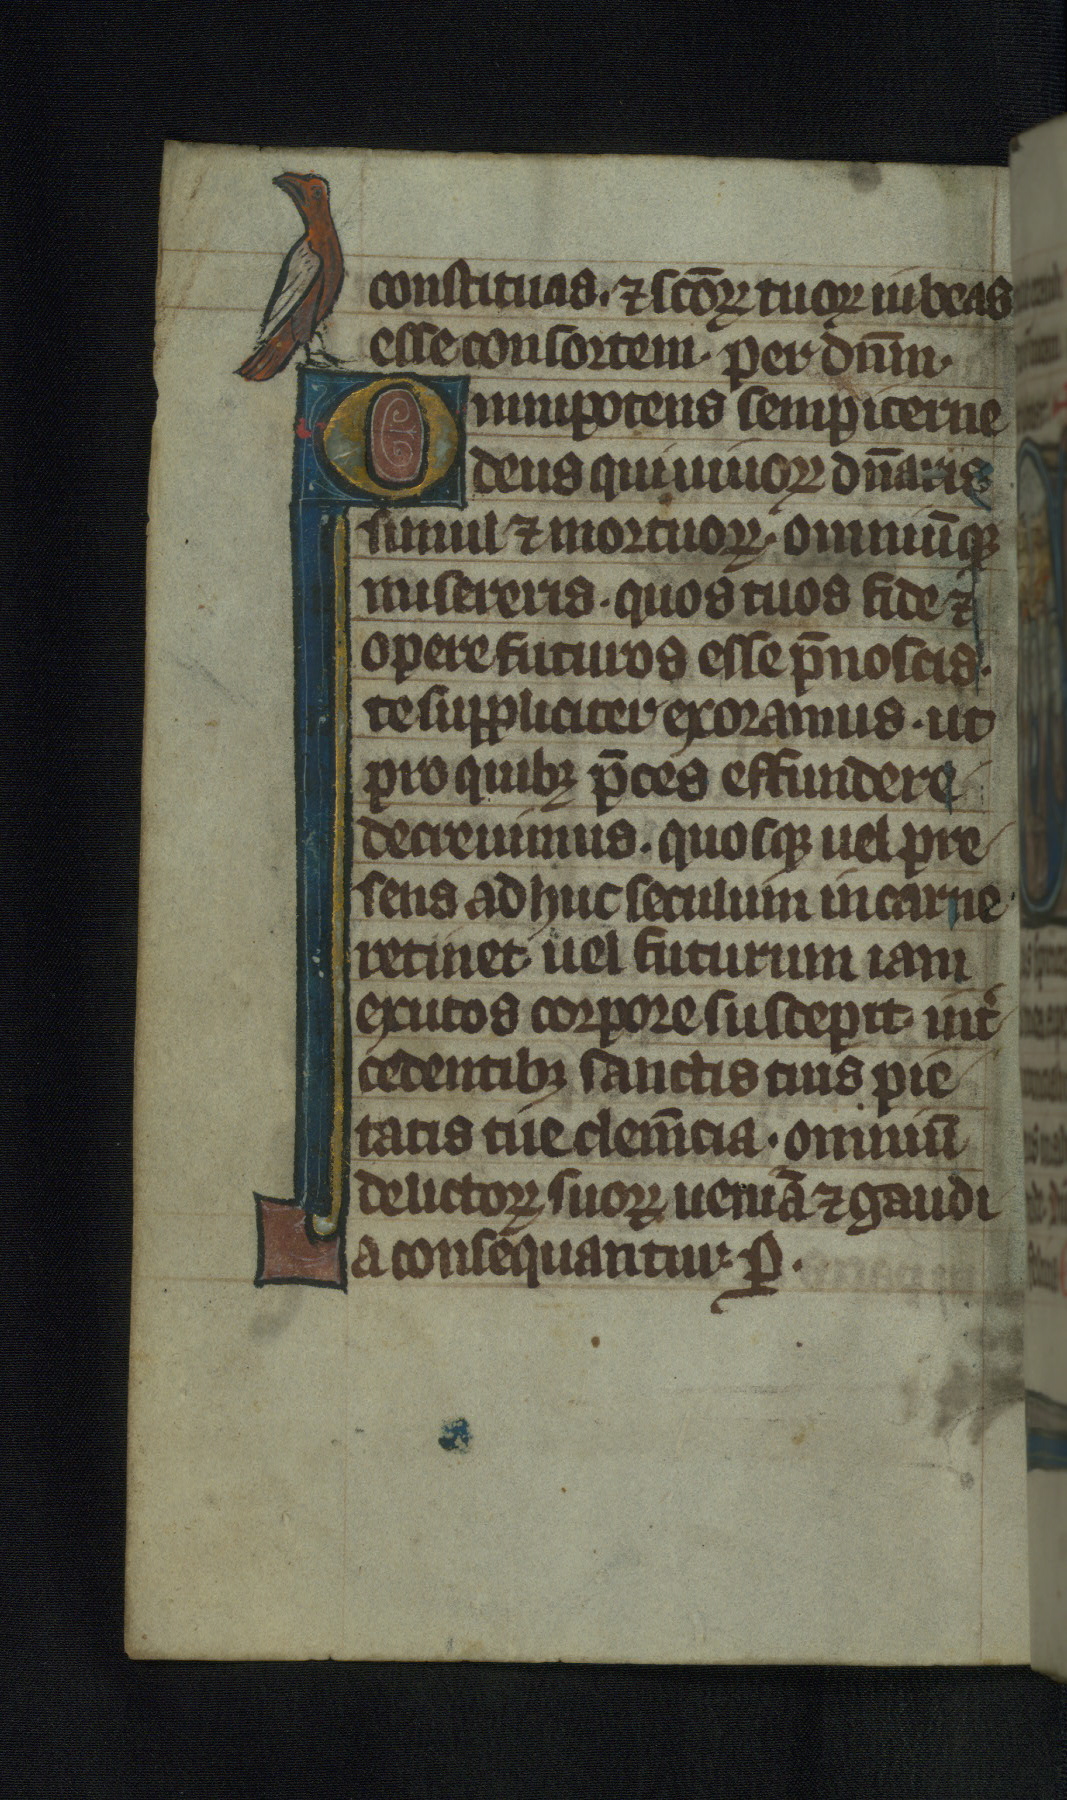 constituas. ⁊ sc̄oꝝ tuoꝝ iubeas
esse consortem. per dn̄m.
Omnipotens sempiterne
deus qui uiuoꝝ dn̄aris
simul ⁊ mortuoꝝ. omniūqꝫ
misereris. quos tuos fide ⁊
opere futuros esse p̄noscis.
te suppliciter exoramus. ut
pro quibꝫ p̄ces effundere
decreuimus. quosqꝫ uel pre
sens adhuc seculum in carne
retinet. uel futurum iam
exutos corpore suscepit. int͛
cedentibꝫ sanctis tuis pie
tatis tue clem̄cia. omniū
delictoꝝ suoꝝ ueniā ⁊ gaudi
a consequantur. P.